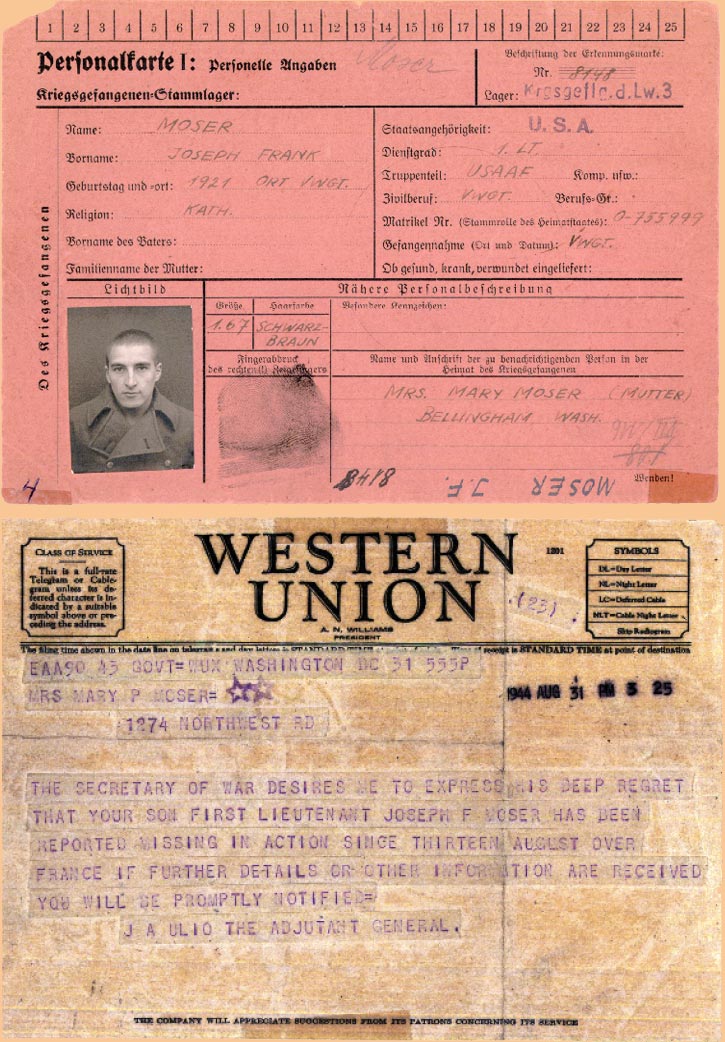 1 2 3 4 5 6 7 8 9 10 11 12 13 14 15 16 17 18 19 20 21 22 23 24 25
Personalkarte I: Personelle Angaben
Moser
Kriegsgefangenen-Stammlager:
Beschriftung der Erkennungsmarke:
Nr. 8148
Lager: Krgsgef.Lg.d.Lw.3
Des Kriegsgefangenen
Name: MOSER
Vorname: JOSEPH FRANK
Geburtstag und -ort: 1921 ORT VWGT.
Religion: KATH.
Vorname des Vaters:
Familienname der Mutter:
Staatsangehörigkeit: U.S.A.
Dienstgrad: 1. LT.
Truppenteil: USAAF Komp. usw.:
Zivilberuf: VWGT. Berufs-Gr.:
Matrikel Nr. (Stammrolle des Heimatstaates): O-755999
Gefangennahme (Ort und Datum): VWGT.
Ob gesund, krank, verwundet eingeliefert:
Lichtbild
Nähere Personalbeschreibung
Größe
1.67
Haarfarbe
SCHWARZ-
BRAUN
Besondere Kennzeichen:
Fingerabdruck
des rechten(!) Zeigefingers
Name und Anschrift der zu benachrichtigenden Person in der
Heimat des Kriegsgefangenen
MRS. MARY MOSER (MUTTER)
BELLINGHAM WASH.
8418
MOSER J.F.
Wenden!
4
CLASS OF SERVICE
This is a full-rate
Telegram or Cable-
gram unless its de-
ferred character is in-
dicated by a suitable
symbol above or pre-
ceding the address.
WESTERN
UNION
A. N. WILLIAMS
PRESIDENT
1201
(23)
SYMBOLS
DL=Day Letter
NL=Night Letter
LC=Deferred Cable
NLT=Cable Night Letter
Ship Radiogram
The filing time shown in the date line on telegrams and day letters is STANDARD TIME at point of origin. Time of receipt is STANDARD TIME at point of destination
EAA90 43 GOVT=WUX WASHINGTON DC 31 555P
MRS MARY P MOSER=
1944 AUG 31 PM 3 25
1274 NORTHWEST RD
THE SECRETARY OF WAR DESIRES ME TO EXPRESS HIS DEEP REGRET
THAT YOUR SON FIRST LIEUTENANT JOSEPH F MOSER HAS BEEN
REPORTED MISSING IN ACTION SINCE THIRTEEN AUGUST OVER
FRANCE IF FURTHER DETAILS OR OTHER INFORMATION ARE RECEIVED
YOU WILL BE PROMPTLY NOTIFIED=
J A ULIO THE ADJUTANT GENERAL.
THE COMPANY WILL APPRECIATE SUGGESTIONS FROM ITS PATRONS CONCERNING ITS SERVICE